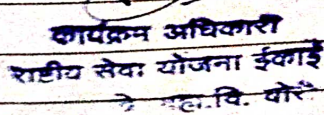 कार्यक्रम अधिकारी
राष्टीय सेवा योजना ईकाई
वि. पोरँ